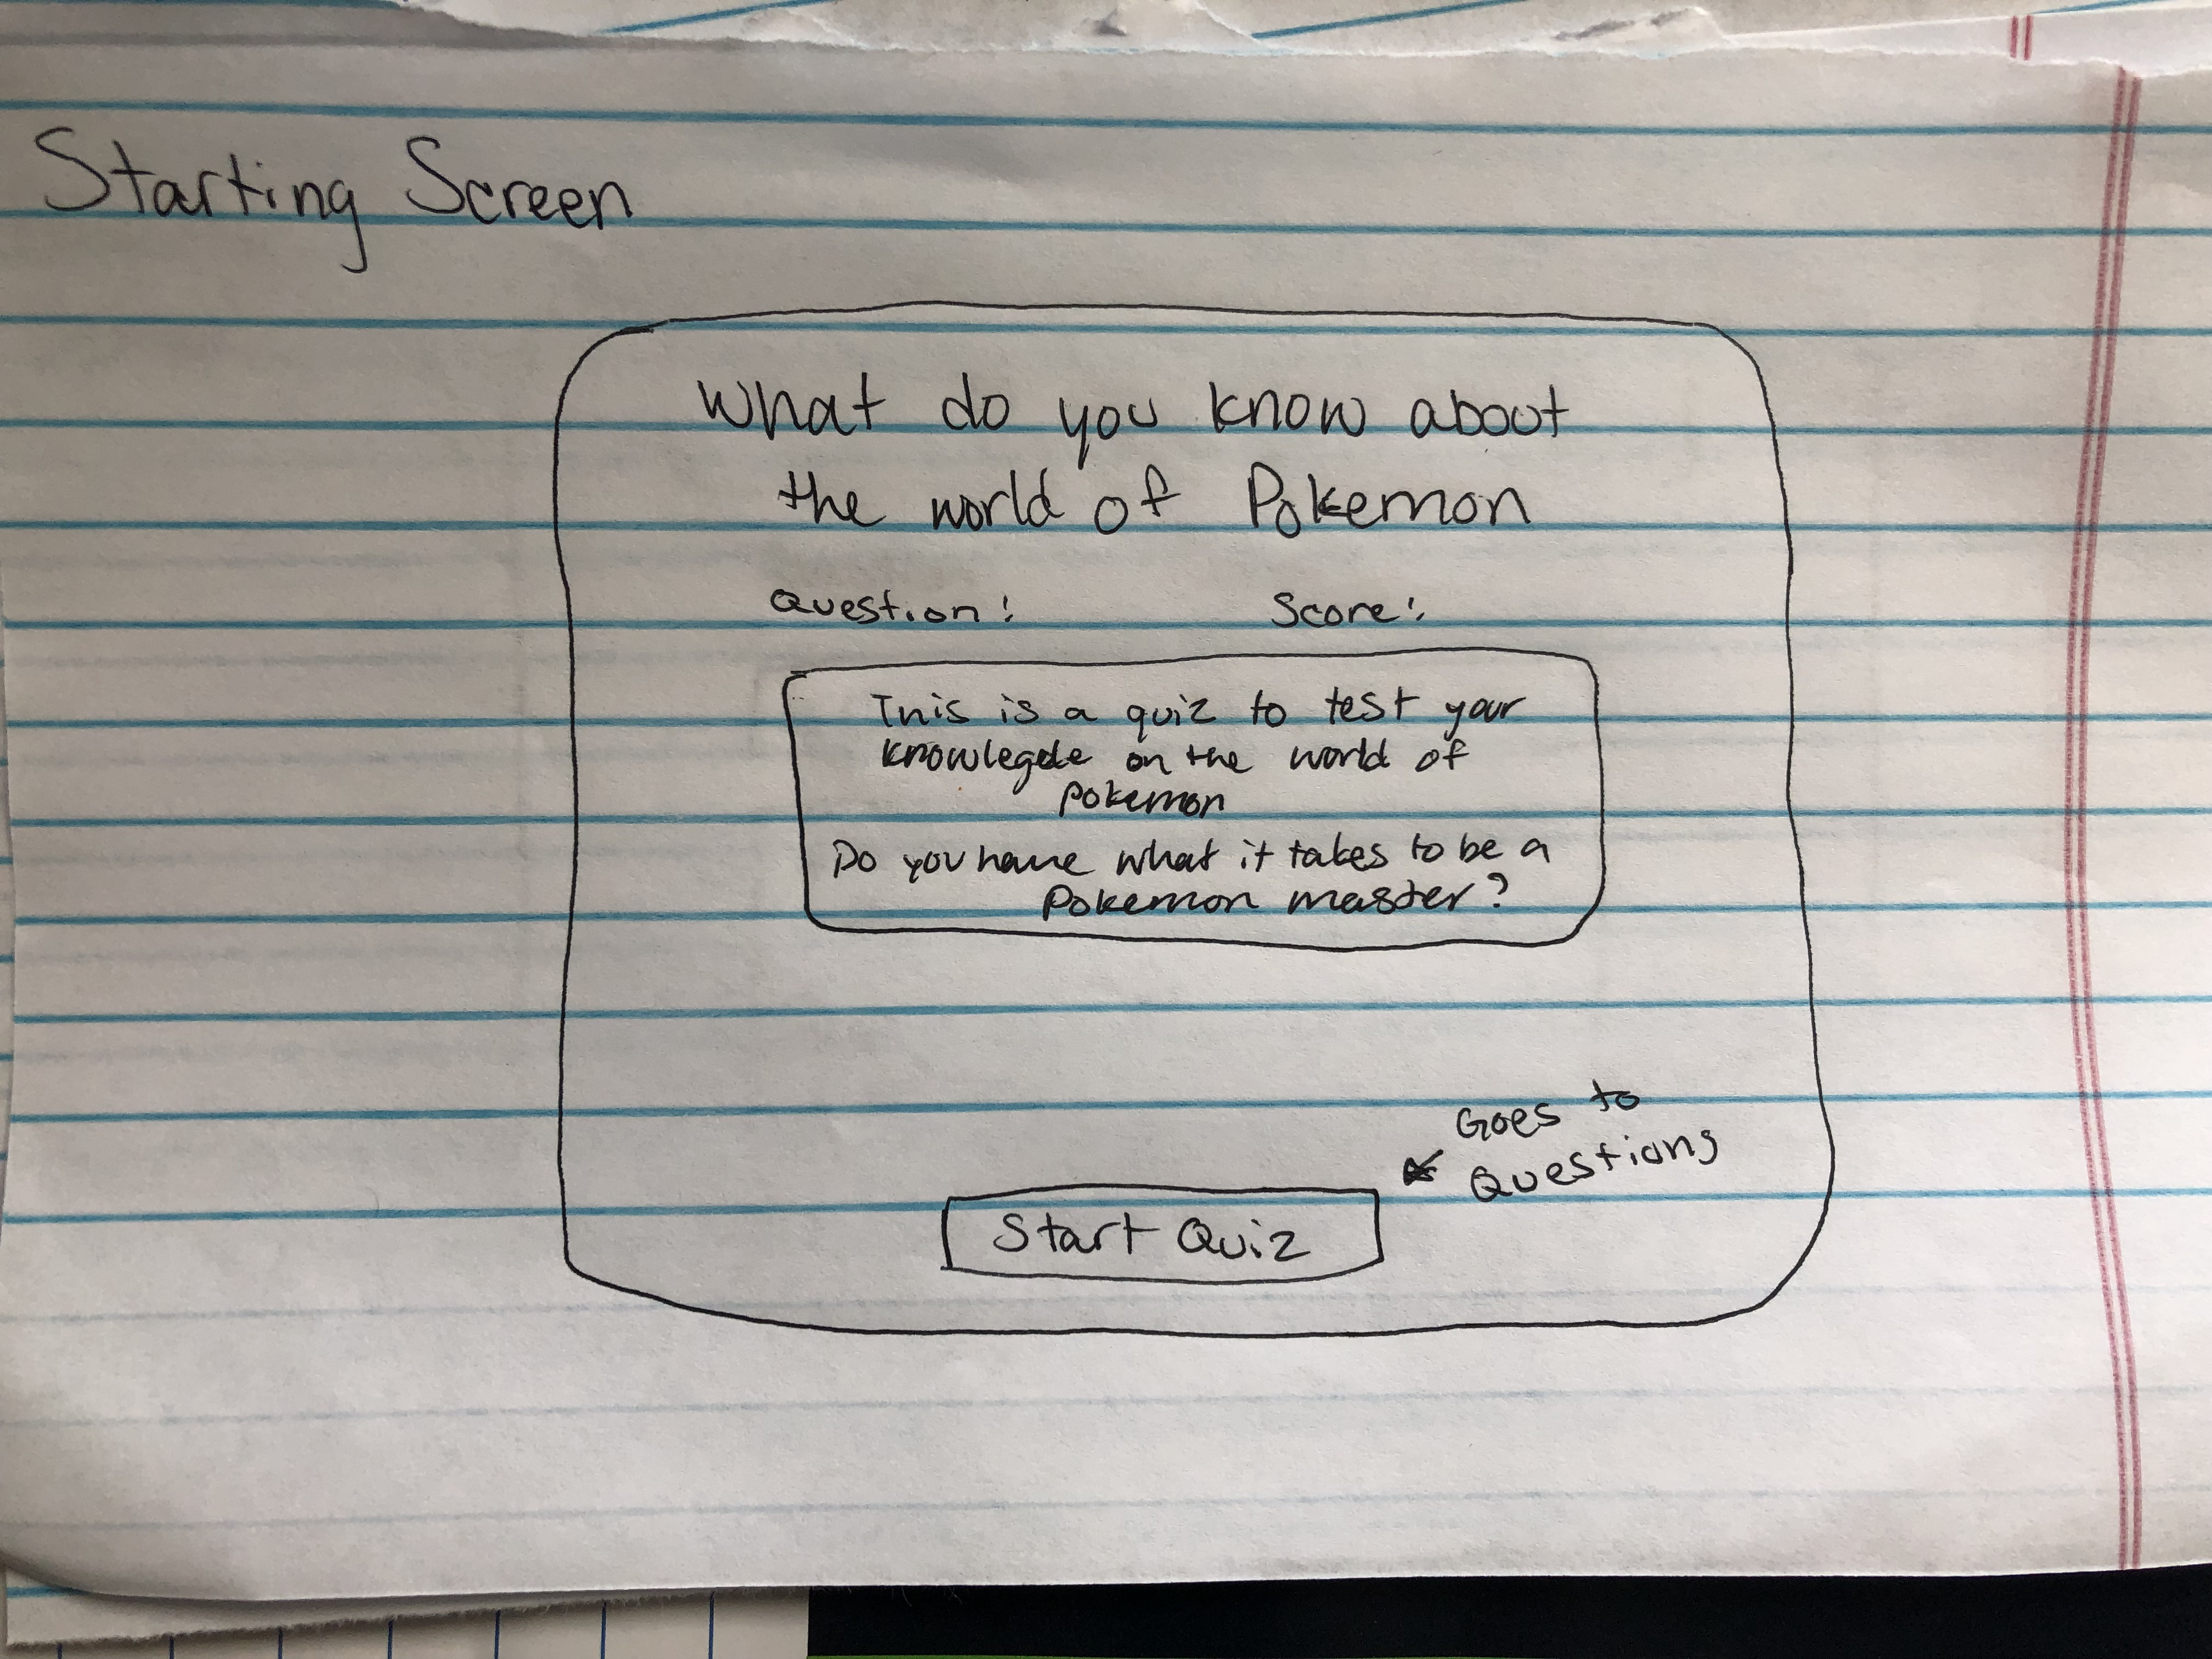 Starting Screen
What do you know about
the world of Pokemon
Question:
Score:
This is a quiz to test your
knowlegde on the world of
pokemon
Do you have what it takes to be a
Pokemon master?
Goes to
Questions
Start Quiz